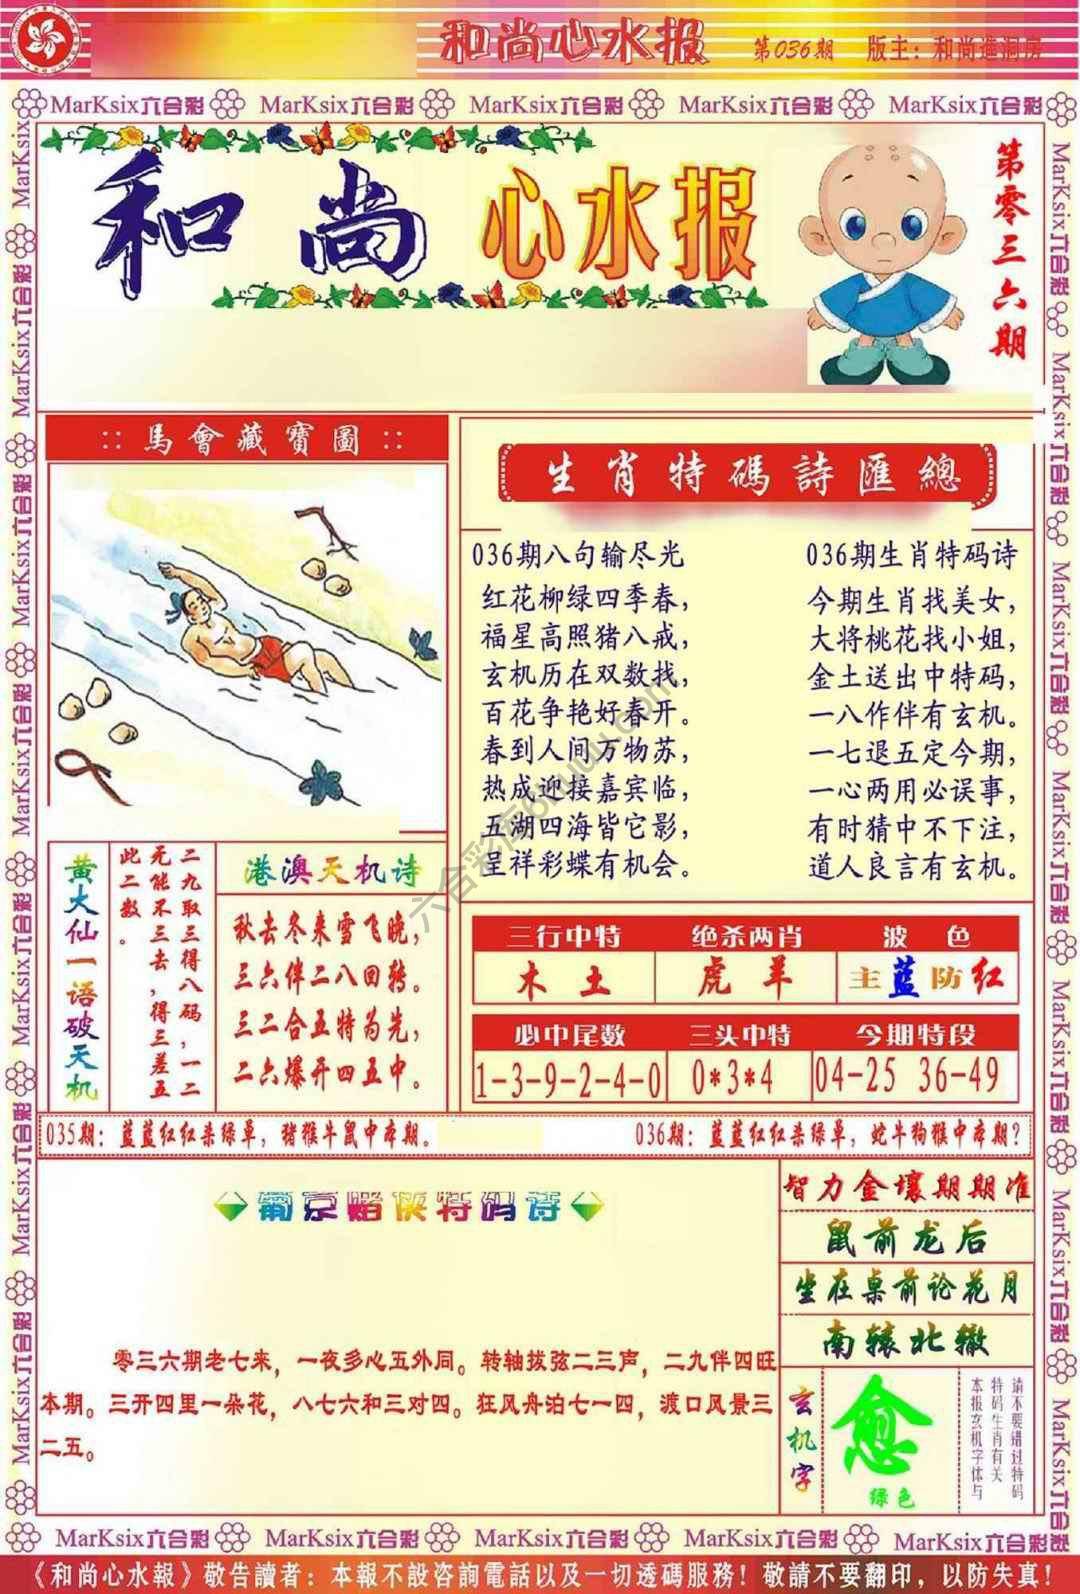 和尚心水报 第036期 版主：和尚進洞房
MarKsix六合彩 MarKsix六合彩 MarKsix六合彩 MarKsix六合彩 MarKsix六合彩
和尚心水报
第零三六期
::馬會藏寶圖::
生肖特碼詩匯總
036期八句输尽光
红花柳绿四季春，
福星高照猪八戒，
玄机历在双数找，
百花争艳好春开。
春到人间万物苏，
热成迎接嘉宾临，
五湖四海皆它影，
呈祥彩蝶有机会。
036期生肖特码诗
今期生肖找美女，
大将桃花找小姐，
金土送出中特码，
一八作伴有玄机。
一七退五定今期，
一心两用必误事，
有时猜中不下注，
道人良言有玄机。
黄大仙一语破天机
二九取三得八码，一二
无能不三去，得三差五
此二数。
港澳天机诗
秋去冬来雪飞晚，
三六伴二八回转。
三二合五特为先，
二六爆开四五中。
三行中特 绝杀两肖 波色
木土 虎羊 主蓝防红
必中尾数 三头中特 今期特段
1-3-9-2-4-0 0*3*4 04-25 36-49
035期：蓝蓝红红杀绿单，猪猴牛鼠中本期。
036期：蓝蓝红红杀绿单，蛇牛狗猴中本期？
葡京赌侠特码诗
零三六期老七来，一夜多心五外同。转轴拨弦二三声，二九伴四旺
本期。三开四里一朵花，八七六和三对四。狂风舟泊七一四，渡口风景三
二五。
智力金壤期期准
鼠前龙后
坐在桌前论花月
南辕北辙
玄机字
愈
绿色
请不要错过特码
特码生肖有关
本报玄机字体与
六合彩库6kuw.com
MarKsix六合彩 MarKsix六合彩 MarKsix六合彩 MarKsix六合彩 MarKsix六合彩
《和尚心水報》敬告讀者：本報不設咨詢電話以及一切透碼服務！敬請不要翻印，以防失真！